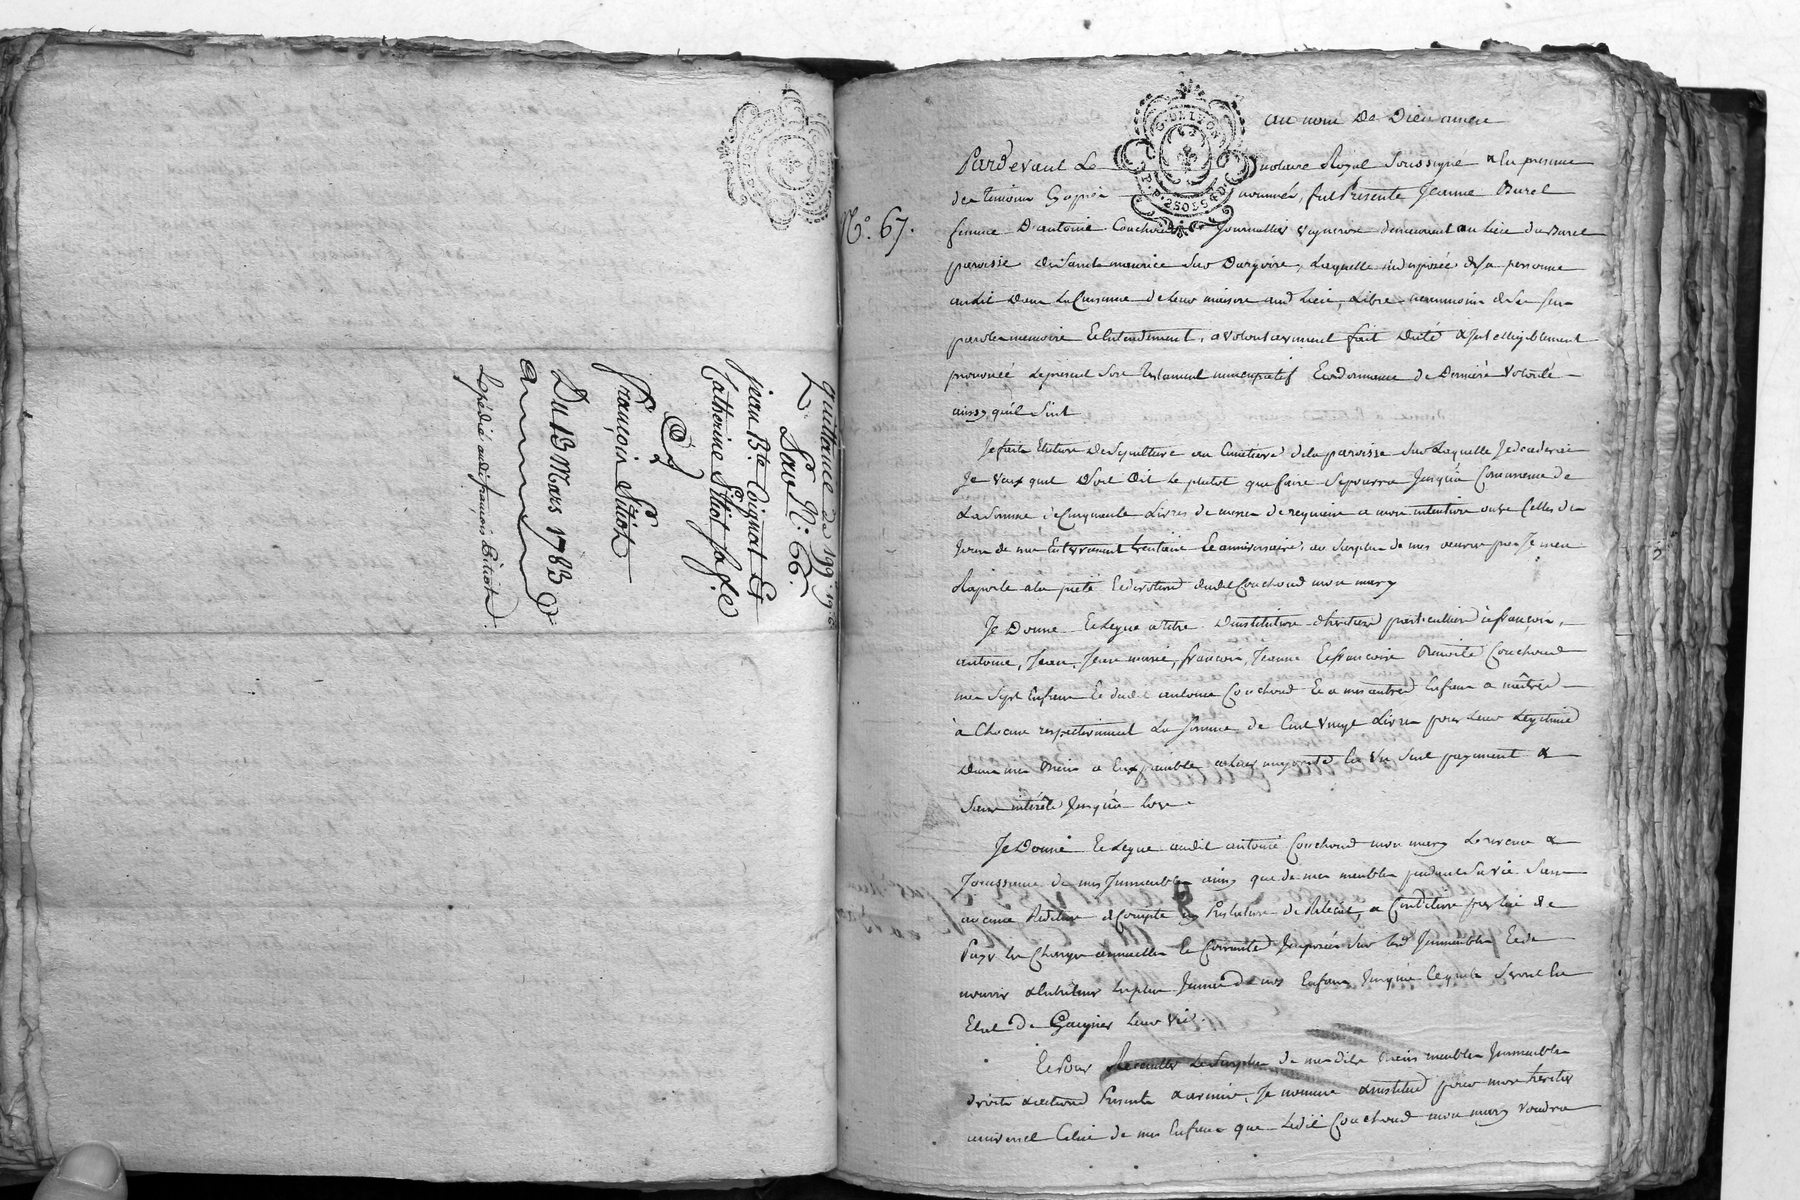 quittance de 199.# 19.s 6.d
Sav N.° 66.
jean B.te Coignat Et
Catherine Sitiot sa f.e
A
françois Sitiot
Du 13 Mars 1783
Expédié audit françois Sitiot
G. DE LYON
au nom De Dieu amen
N.° 67.
Pardevant Le notaire Royal Soussigné & En presence
des temoins Cy après nommés, fut Presente Jeanne Burel
femme D'antoine Couchoud Journallier vigneron demeurant au Lieu du Burel
paroisse De Saint maurice Sur Dargoire, Laquelle indisposée de sa personne
au Lit Dans La Cuisine de Leur maison aud. Lieu, Libre neanmoins de Ses sens
parole memoire Et Entendement, a volontairement fait Dicté & Intelligiblement
prononcé Le present Son Testament nuncupatif Et ordonnance De Derniere volonté
ainsy qu'il Suit
Je fais Election De Sepulture au Cimetiere de la paroisse Sur Laquelle Je decederai
Je veux qu'il Soit Dit Le plutot que faire Se pourra Jusqu'à Concurrence de
La Somme de Cinquante Livres de messes de requiem a mon intention outre Celles du
Jour de mon Enterrement trentaine Et anniversaire, au Surplus de mes œuvres pies Je m'en
Raporte a la pieté Et devotion dudit Couchoud mon mary
Je Donne Et Legue a titre D'institution d'heritiers particuliers à françois,
antoine, Jean, Jean marie, françois, Jeanne Et françoise Benoite Couchoud
mes Sept Enfans Et dudit antoine Couchoud Et a mes autres Enfans a naître
à Chacun respectivement La Somme de Cent vingt Livres pour Leur Legitime
Dans mes Biens a Eux payable a Leur majorité En Un Seul payement &
Sans intérêts Jusqu'à Lors.
Je Donne Et Legue audit antoine Couchoud mon mary Le revenu &
Jouissance de mes Immeubles ainsy que de mes meubles pendant Sa vie Sans
aucune Reddition de Compte ny Prestation de Reliquat, a Condition par Lui de
Payer Les Charges annuelles Et Courantes Imposées Sur Led. Immeubles Et de
nourrir & Entretenir Les plus Jeunes de mes Enfans Jusqu'à Ce qu'ils Seront En
Etat De Gagner Leur vie.
Et Pour Recueillir Le Surplus de mes dits Biens meubles Immeubles
droits & actions Presents & avenir, Je nomme & institue pour mon heritier
universel Celui de mes Enfans que Ledit Couchoud mon mary voudra